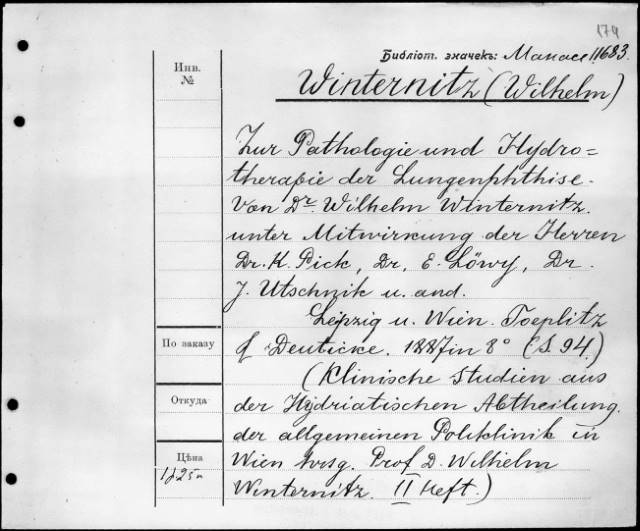 174
Библiот. значекъ: Манасс 11683.
Инв.
№
Winternitz (Wilhelm)
Zur Pathologie und Hydro=
therapie der Lungenphthise.
Von Dr. Wilhelm Winternitz.
unter Mitwirkung der Herren
Dr. K. Pick, Dr. E. Löwy, Dr.
J. Utschnik u. and.
Leipzig u. Wien. Toeplitz
По заказу
& Deuticke. 1887 in 8° (S. 94.)
(Klinische Studien aus
Откуда
der Hydriatischen Abtheilung.
der allgemeinen Poliklinik in
Цѣна
Wien hrsg. Prof. D. Wilhelm
Winternitz. II Heft.)